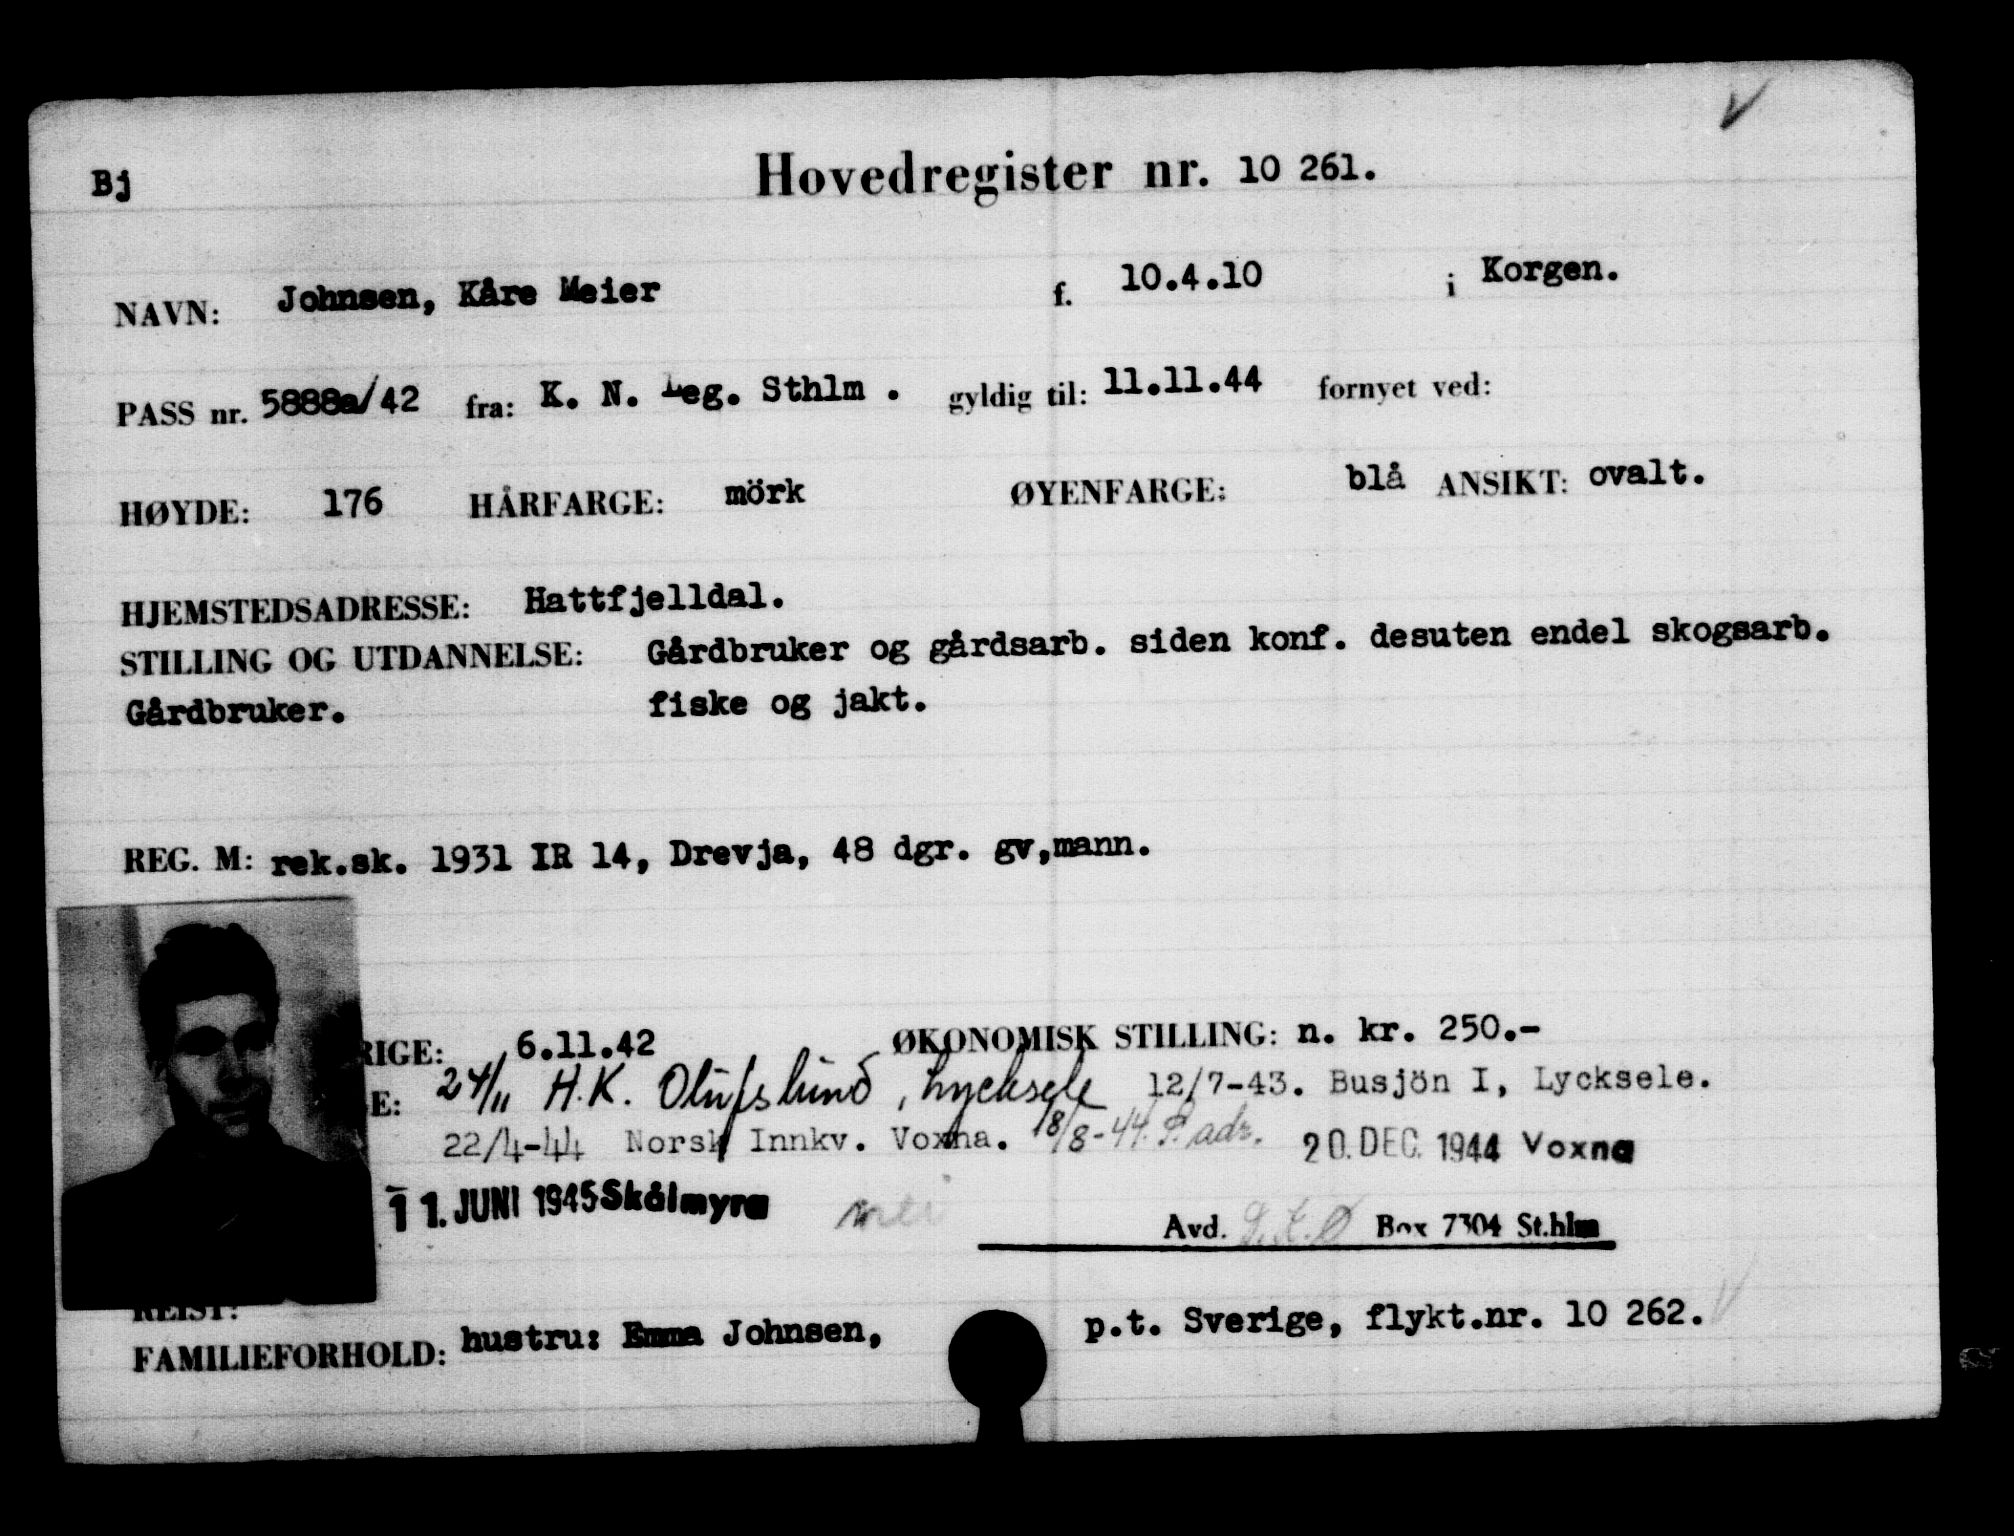 Bj
Hovedregister nr. 10 261.
NAVN: Johnsen, Kåre Meier f. 10.4.10 i Korgen.
PASS nr. 5888a/42 fra: K. N. Leg. Sthlm . gyldig til: 11.11.44 fornyet ved:
HØYDE: 176 HÅRFARGE: mörk ØYENFARGE: blå ANSIKT: ovalt.
HJEMSTEDSADRESSE: Hattfjelldal.
STILLING OG UTDANNELSE: Gårdbruker og gårdsarb. siden konf. desuten endel skogsarb.
Gårdbruker. fiske og jakt.
REG. M: rek.sk. 1931 IR 14, Drevja, 48 dgr. gv,mann.
RIGE: 6.11.42 ØKONOMISK STILLING: n. kr. 250.-
E: 24/11 H.K. Olufslund, Lycksele 12/7-43. Busjön I, Lycksele.
22/4-44 Norsk Innkv. Voxna. 18/8-44. P. adr. 20. DEC. 1944 Voxna
11. JUNI 1945 Skålmyra
Avd. Box 7304 St.hlm
REIST:
FAMILIEFORHOLD: hustru: Emma Johnsen, p.t. Sverige, flykt.nr. 10 262.